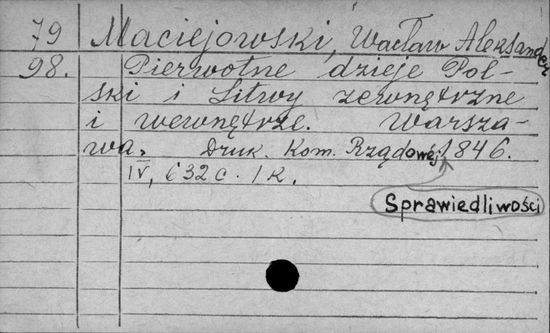 79 Maciejowski, Wacław Aleksander
98. Pierwotne dzieje Pol-
ski i Litwy zewnętrzne
i wewnętrze. Warsza-
wa. Druk. Kom. Rządowej 1846.
IV, 632 c. 1 k.
Sprawiedliwości